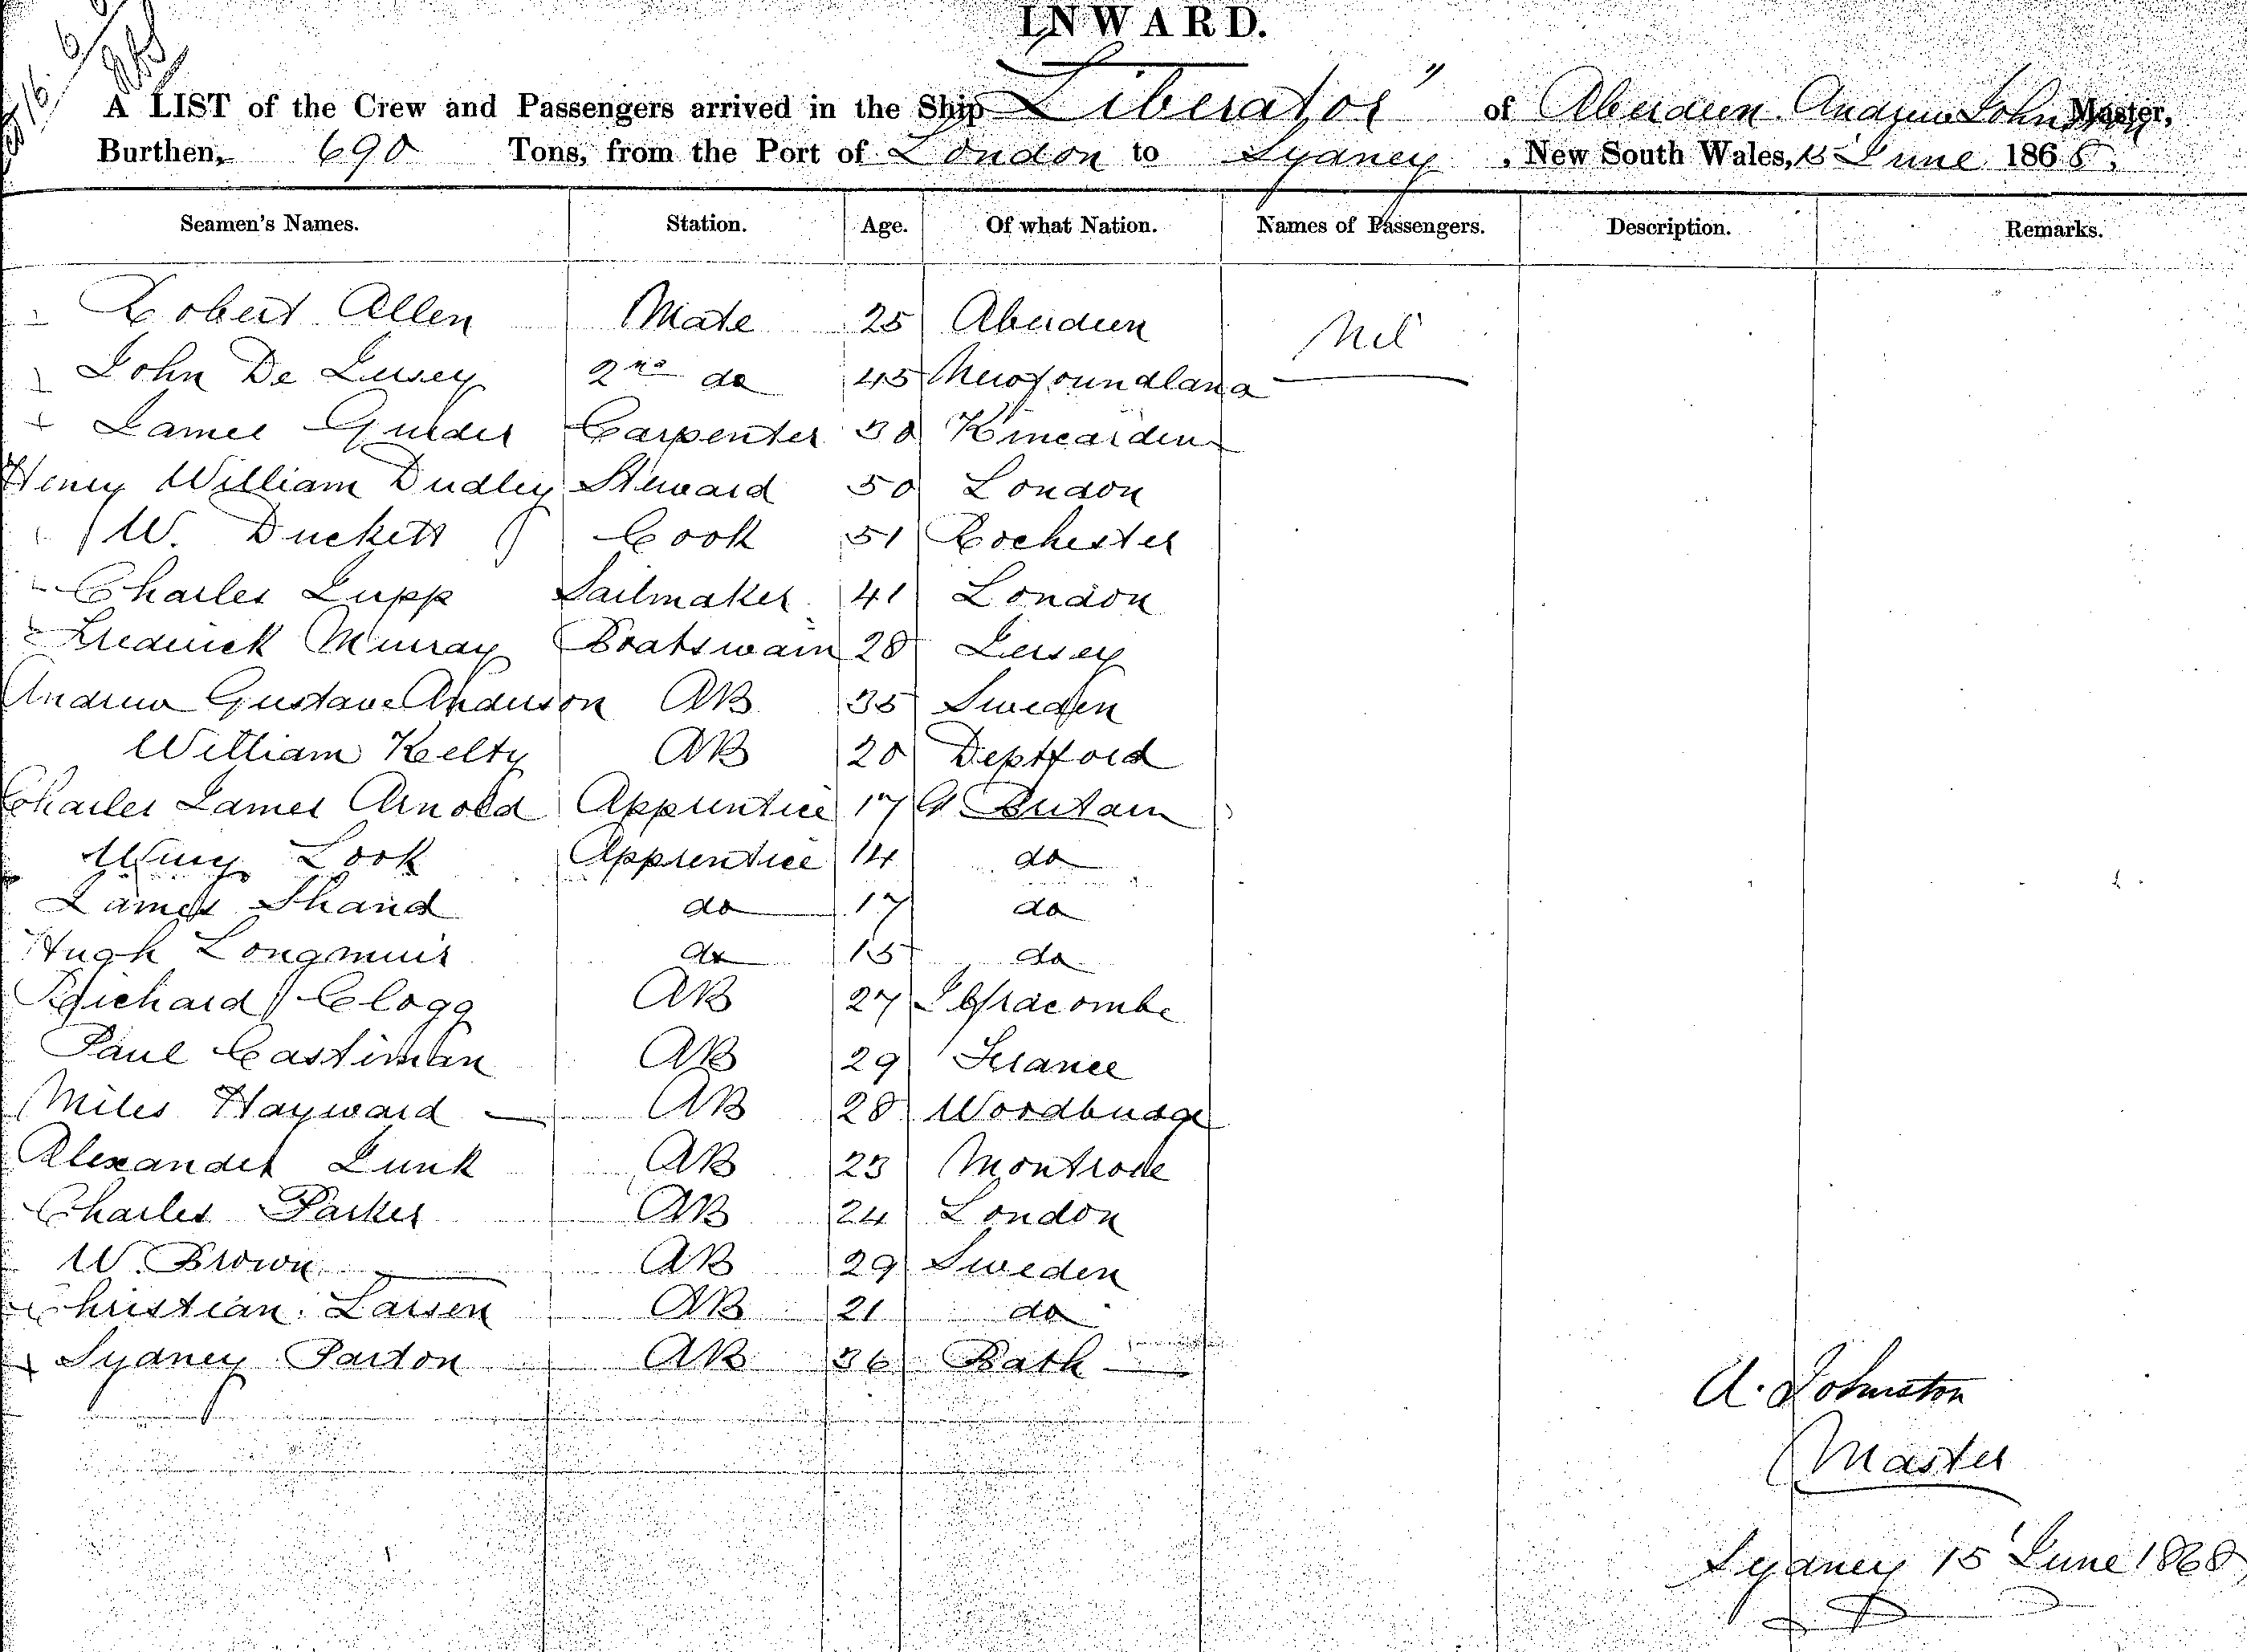 INWARD.
A LIST of the Crew and Passengers arrived in the Ship "Liberator" of Aberdeen Andrew Johnston Master,
Burthen, 690 Tons, from the Port of London to Sydney, New South Wales, 15 June 1868,
Seamen's Names. Station. Age. Of what Nation. Names of Passengers. Description. Remarks.
Robert Allen Mate 25 Aberdeen Nil
John De Jersey 2nd do 45 Newfoundland
James Carpenter 30 Kincardine
Henry William Dudley Steward 50 London
W. Duckett Cook 51 Rochester
Charles Lupp Sailmaker 41 London
Frederick Murray Boatswain 28 Jersey
Andrew Gustave Anderson AB 35 Sweden
William Keelty AB 20 Deptford
Charles James Arnold Apprentice 17 G Britain
Look Apprentice 14 do
James Shand do 17 do
Hugh Longmuir do 15 do
Richard Clogg AB 27 Ilfracombe
Paul Castiman AB 29 France
Miles Hayward AB 28 Woodbridge
Alexander AB 23 Montrose
Charles Parker AB 24 London
W. Brown AB 29 Sweden
Christian Larsen AB 21 do
Sydney Parton AB 36 Bath
A. Johnston
Master
Sydney 15 June 1868